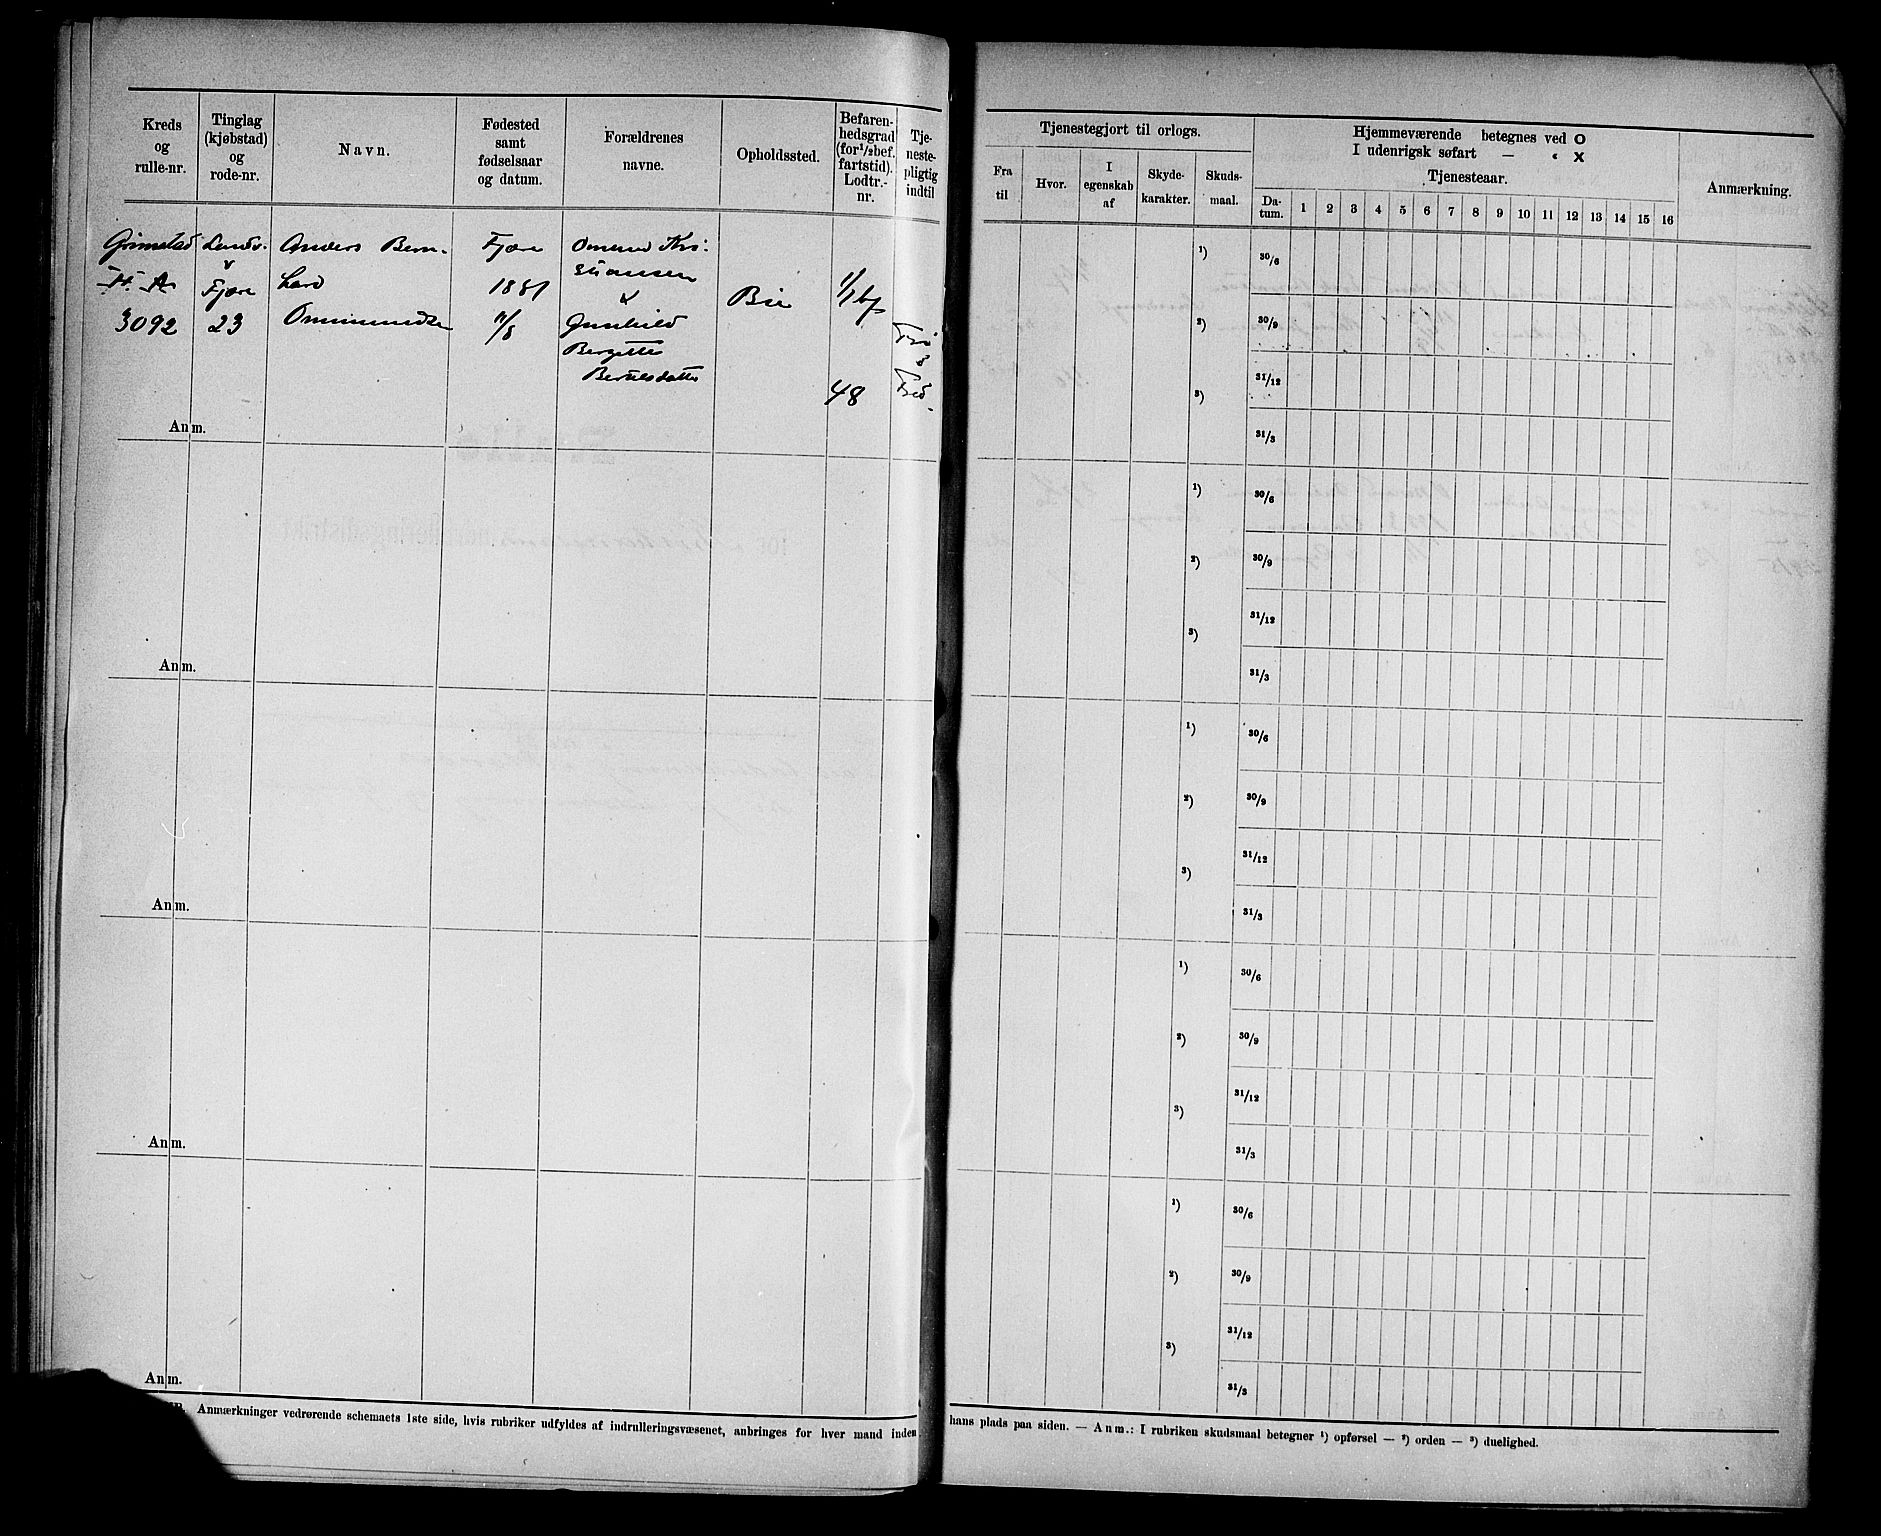 Kreds
og
rulle-nr.
Tinglag
(kjøbstad)
og
rode-nr.
Navn.
Fødested
samt
fødselsaar
og datum.
Forældrenes
navne.
Opholdssted.
Befaren-
hedsgrad
(for 1/2 bef.
fartstid).
Lodtr.-
nr.
Tje-
neste-
pligtig
indtil
Grimstad
3092
Landv.
Fjære
23
Anders Bern-
hard
Fjære
1881
11/8
Omund Kri-
stiansen
Gunhild
Bergette
Bertelsdatter
Bie
1/1 bf
48
Anm.
Anm.
Anm.
Anm.
Anm.
Anmærkninger vedrørende schemaets 1ste side, hvis rubriker udfyldes af indrulleringsvæsenet, anbringes for hver mand inden
Tjenestegjort til orlogs.
Fra
til
Hvor.
I
egenskab
af
Skyde-
karakter.
Skuds-
maal.
Hjemmeværende betegnes ved O
I udenrigsk søfart — " X
Tjenesteaar.
Da-
tum. 1 2 3 4 5 6 7 8 9 10 11 12 13 14 15 16
Anmærkning.
1) 30/6
2) 30/9
31/12
3)
31/3
1) 30/6
2) 30/9
31/12
3)
31/3
1) 30/6
2) 30/9
31/12
3)
31/3
1) 30/6
2) 30/9
31/12
3)
31/3
1) 30/6
2) 30/9
31/12
3)
31/3
hans plads paa siden. — Anm.: I rubriken skudsmaal betegner 1) opførsel — 2) orden — 3) duelighed.